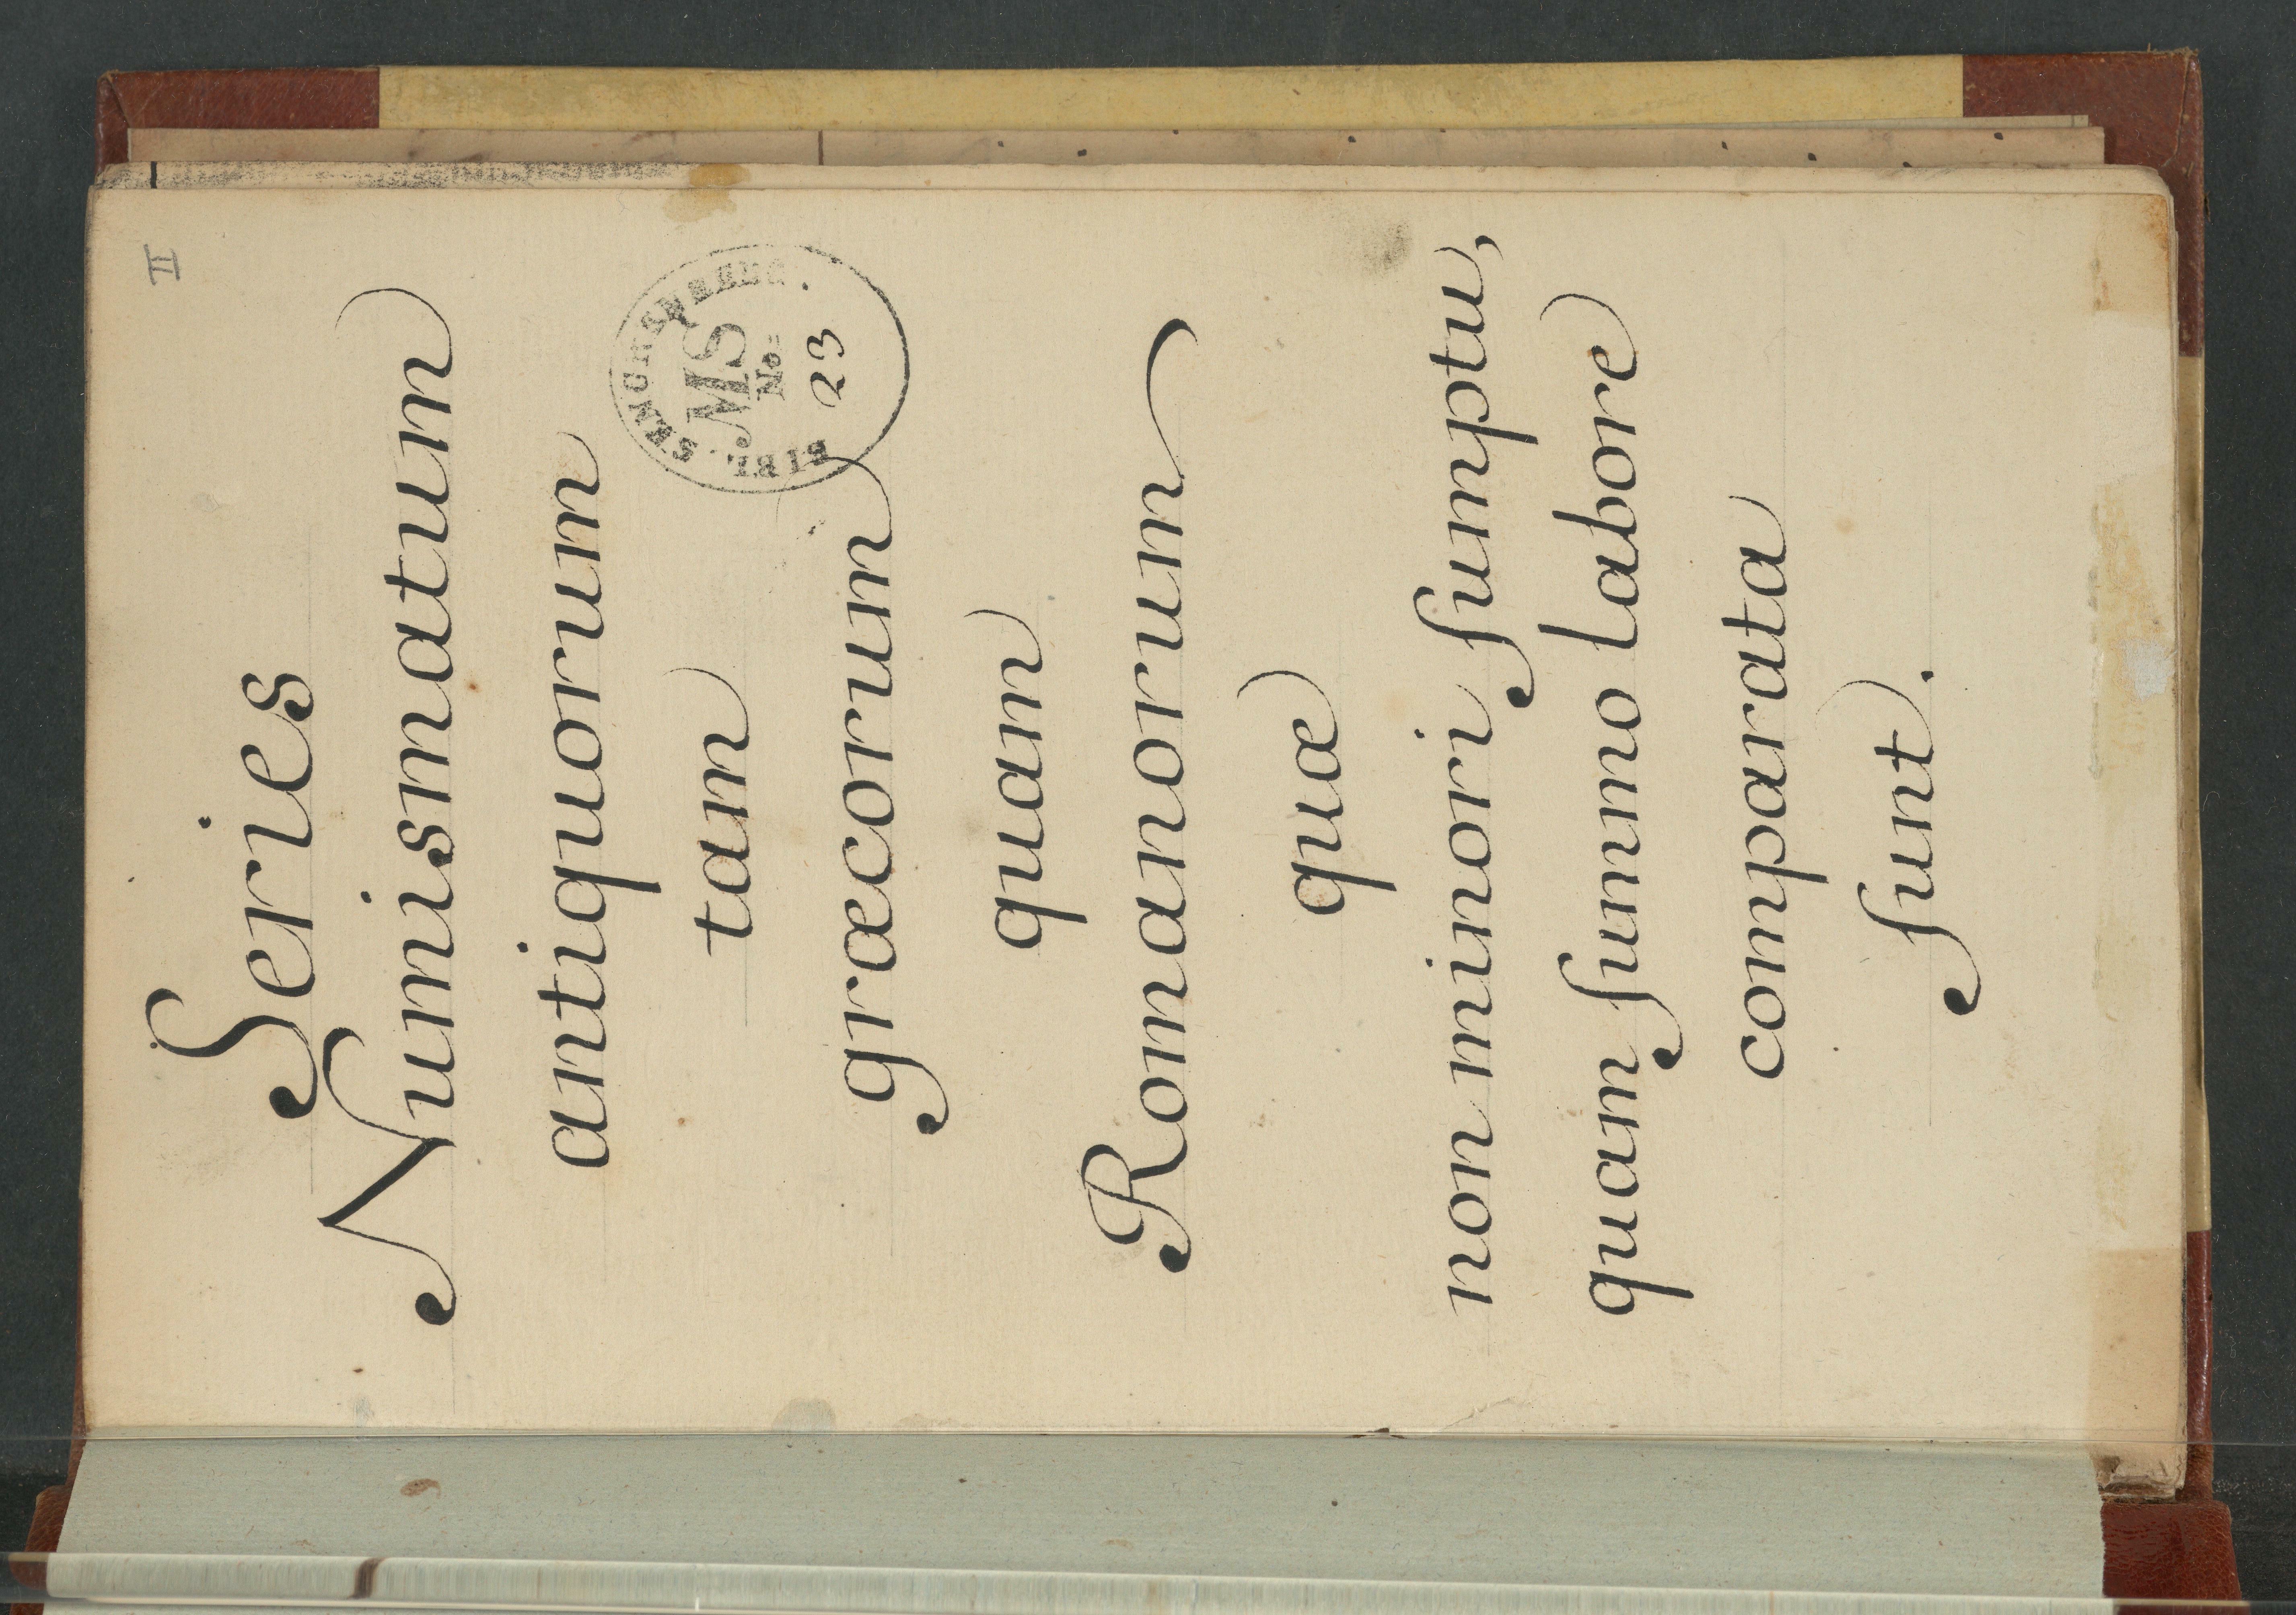 II
Series
Numismatum
antiquorum
tam
græcorum
quam
Romanorum
quæ
non minori sumptu,
quam summo labore
comparata
sunt.
BIBL.
MS
No:
23